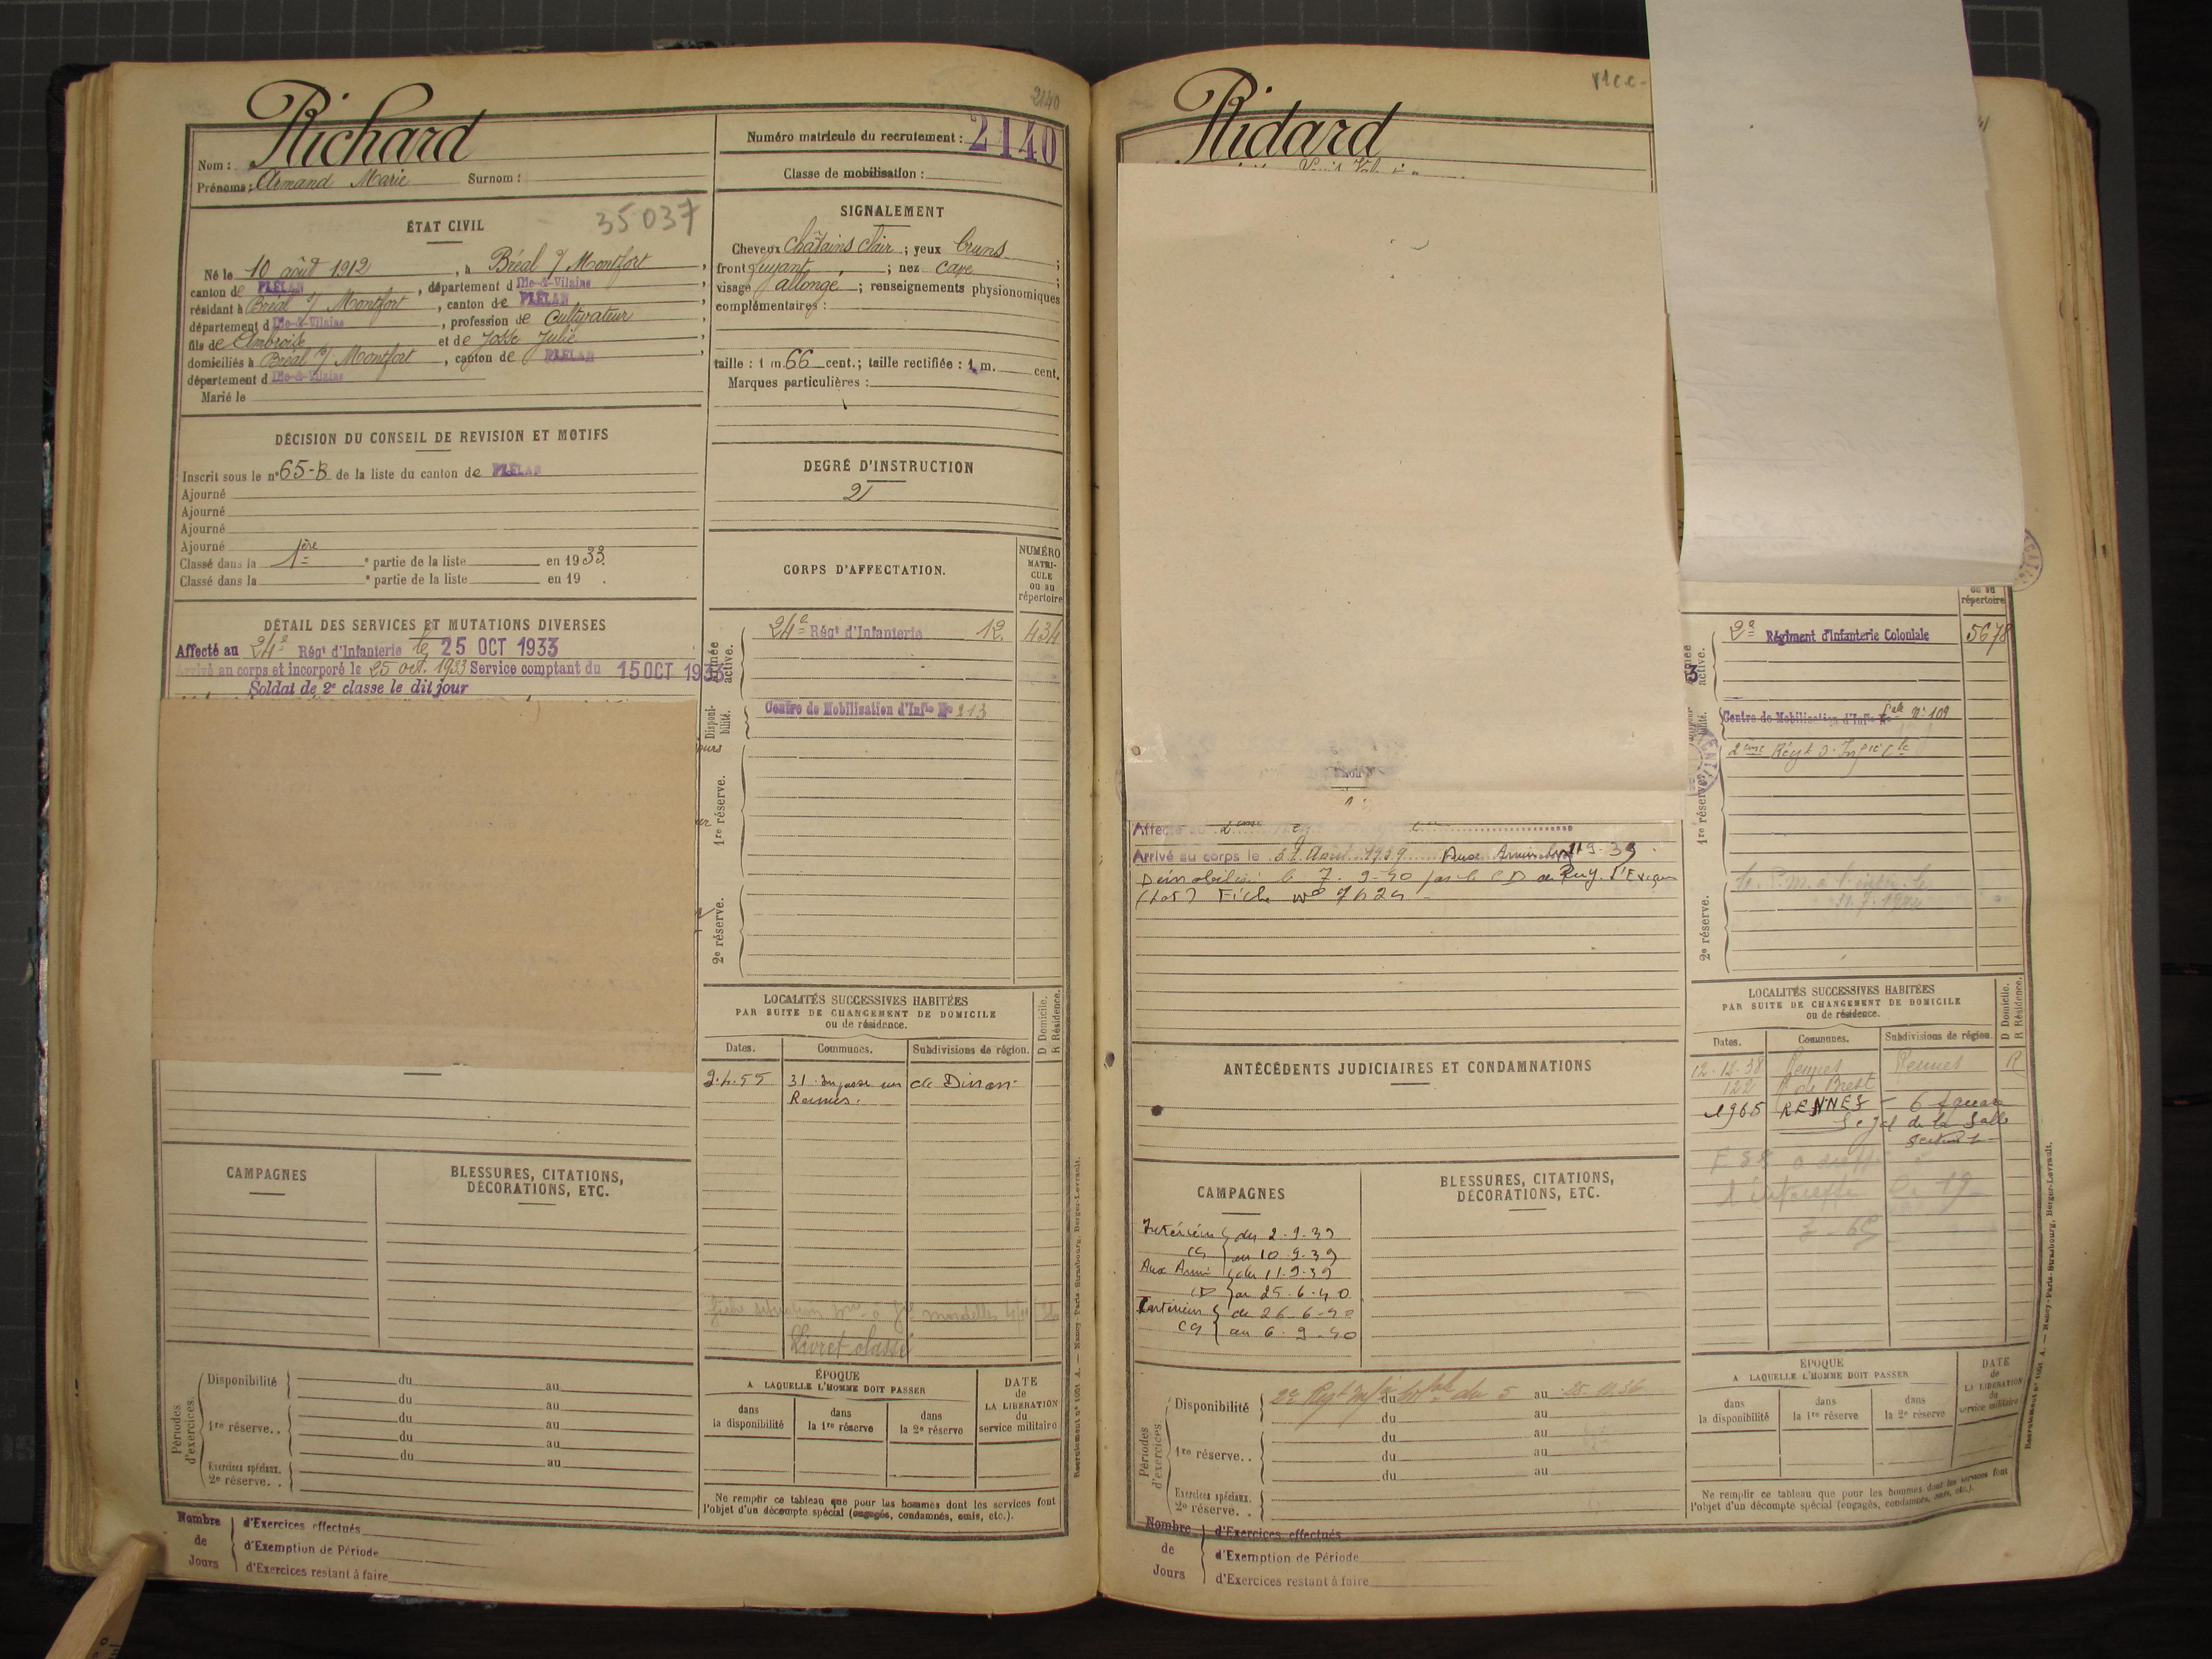 2140
Richard
Nom :
Prénoms : Armand Marie Surnom :
Numéro matricule du recrutement : 2140
Classe de mobilisation :
ÉTAT CIVIL
35037
Né le 10 août 1912, à Bréal s/ Montfort,
canton de PLÉLAN, département d Ille-&-Vilaine
résidant à Bréal s/ Montfort, canton de PLÉLAN
département d Ille-&-Vilaine, profession de Cultivateur,
fils de Ambroise et de Josse Julie,
domiciliés à Bréal s/ Montfort, canton de PLÉLAN,
département d Ille-&-Vilaine
Marié le
SIGNALEMENT
Cheveux châtains clair ; yeux bruns ;
front fuyant ; nez cave ;
visage allongé ; renseignements physionomiques
complémentaires :
taille : 1 m. 66 cent. ; taille rectifiée : 1 m. cent.
Marques particulières :
DÉCISION DU CONSEIL DE REVISION ET MOTIFS
Inscrit sous le n° 65-B de la liste du canton de PLÉLAN
Ajourné
Ajourné
Ajourné
Ajourné
Classé dans la 1ère partie de la liste en 1933.
Classé dans la e partie de la liste en 19 .
DEGRÉ D'INSTRUCTION
2
CORPS D'AFFECTATION.
NUMÉRO MATRI-CULE ou au répertoire
DÉTAIL DES SERVICES ET MUTATIONS DIVERSES
Affecté au 24e Régt d'Infanterie le 25 OCT 1933
Arrivé au corps et incorporé le 25 oct. 1933 Service comptant du 15 OCT 1933
Soldat de 2e classe le dit jour
Armée active.
24e Régt d'Infanterie 12. 434
Disponi-bilité.
Centre de Mobilisation d'Infie No 213
1re réserve.
2e réserve.
LOCALITÉS SUCCESSIVES HABITÉES
PAR SUITE DE CHANGEMENT DE DOMICILE
ou de résidence.
D Domicile.
R Résidence.
Dates. Communes. Subdivisions de région.
2.4.55 31 Impasse
de Dinan
Rennes.
Livret classé
CAMPAGNES
BLESSURES, CITATIONS,
DÉCORATIONS, ETC.
Périodes d'exercices.
Disponibilité du au
du au
1re réserve.. du au
du au
du au
Exercices spéciaux.
2e réserve. .
ÉPOQUE
A LAQUELLE L'HOMME DOIT PASSER
dans la disponibilité
dans la 1re réserve
dans la 2e réserve
DATE de LA LIBÉRATION du service militaire
Ne remplir ce tableau que pour les hommes dont les services font
l'objet d'un décompte spécial (engagés, condamnés, omis, etc.).
Nombre de Jours
d'Exercices effectués
d'Exemption de Période
d'Exercices restant à faire
Ridard
répertoire
Armée active.
2e Régiment d'Infanterie Coloniale 5678
Centre de Mobilisation d'Infie Cale N° 109
2ème Régt d'Infie Cle
1re réserve.
2e réserve.
Arrivé au corps le 31 Août 1939 Aux Armées le 11-9-39
Démobilisé le 7-9-40 par le CD de Puy-l'Evêque
(Lot) Fiche n° 7624
ANTÉCÉDENTS JUDICIAIRES ET CONDAMNATIONS
LOCALITÉS SUCCESSIVES HABITÉES
PAR SUITE DE CHANGEMENT DE DOMICILE
ou de résidence.
D Domicile.
R Résidence.
Dates. Communes. Subdivisions de région.
12.12.38 Rennes Rennes R
122 R. de Brest
1965 RENNES - 6 Square
de la Salle
CAMPAGNES
BLESSURES, CITATIONS,
DÉCORATIONS, ETC.
Intérieur du 2-9-39
CS au 10-9-39
Aux Armées du 11-9-39
CD au 25-6-40
Intérieur du 26-6-40
CS au 6-9-40
Périodes d'exercices
Disponibilité 2e Régt Infie Colle du 5 au 25.11.36
du au
du au
1re réserve.. du au
du au
Exercices spéciaux.
2e réserve. .
ÉPOQUE
A LAQUELLE L'HOMME DOIT PASSER
dans la disponibilité
dans la 1re réserve
dans la 2e réserve
DATE de LA LIBÉRATION du service militaire
Ne remplir ce tableau que pour les hommes dont les services font
l'objet d'un décompte spécial (engagés, condamnés, omis, etc.).
Nombre de Jours
d'Exercices effectués
d'Exemption de Période
d'Exercices restant à faire